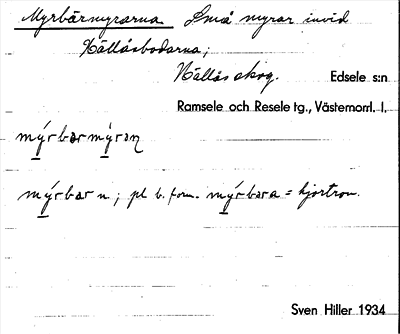 Myrbärmyrarna Små myrar invid
Hällåsbodarna;
Hällås skog. Edsele s:n
Ramsele och Resele tg., Västernorrl. l.
mýrbærmýraɳ
mýrbær n; pl b. form. mýrbæra = hjortron.
Sven Hiller 1934